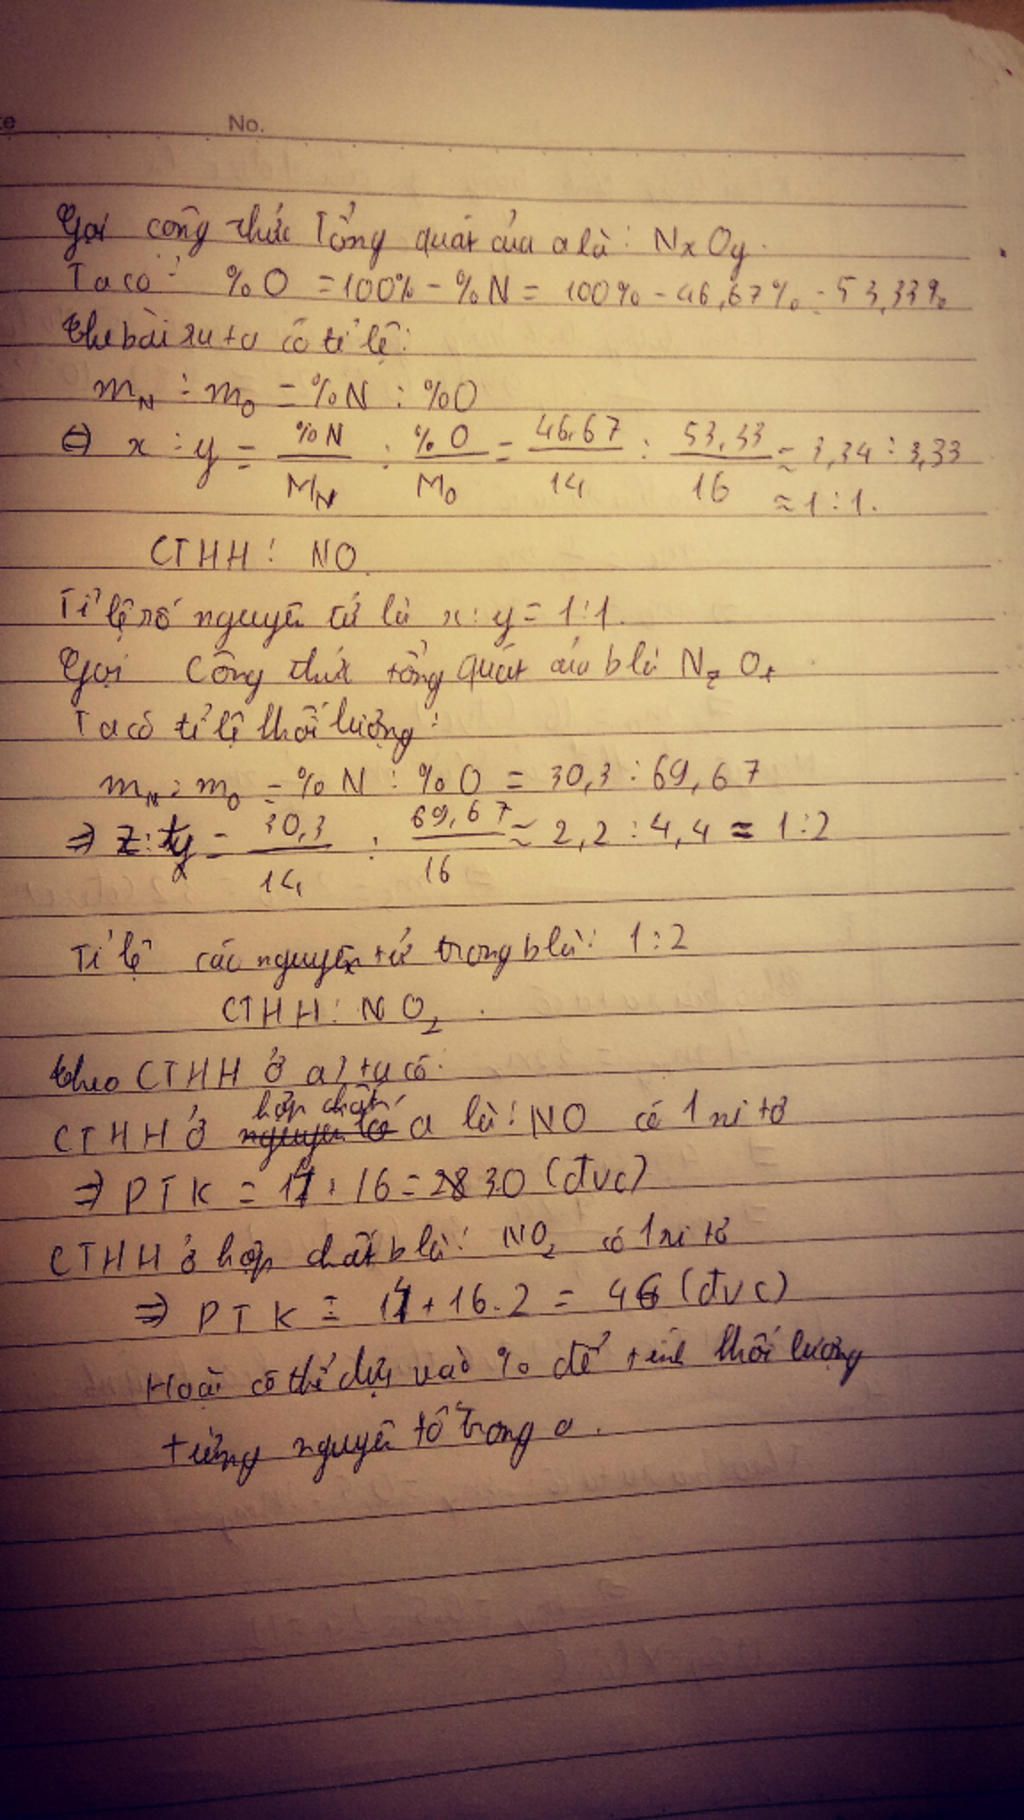 No.
Gọi công thức Tổng quát của a là: NxOy.
Ta có: %O = 100% - %N = 100% - 46,67% = 53,33%
theo bài ra ta có tỉ lệ:
mN : mO = %N : %O
⇔ x : y = %N/MN : %O/MO = 46,67/14 : 53,33/16 ≈ 3,34 : 3,33
≈ 1 : 1.
CTHH: NO.
Tỉ lệ số nguyên tử là x : y = 1:1.
Gọi công thức tổng quát của b là NzOt.
Ta có tỉ lệ khối lượng:
mN : mO = %N : %O = 30,3 : 69,67
⇒ z : t = 30,3/14 : 69,67/16 ≈ 2,2 : 4,4 ≈ 1:2
Tỉ lệ các nguyên tử trong b là: 1:2
CTHH: NO2.
theo CTHH ở a) ta có:
CTHH ở hợp chất a là: NO có 1 nitơ
⇒ PTK = 14 + 16 = 30 (đvc)
CTHH ở hợp chất b là: NO2 có 1 nitơ
⇒ PTK = 14 + 16.2 = 46 (đvc)
Hoặc có thể dựa vào % để tính khối lượng
từng nguyên tố trong a.